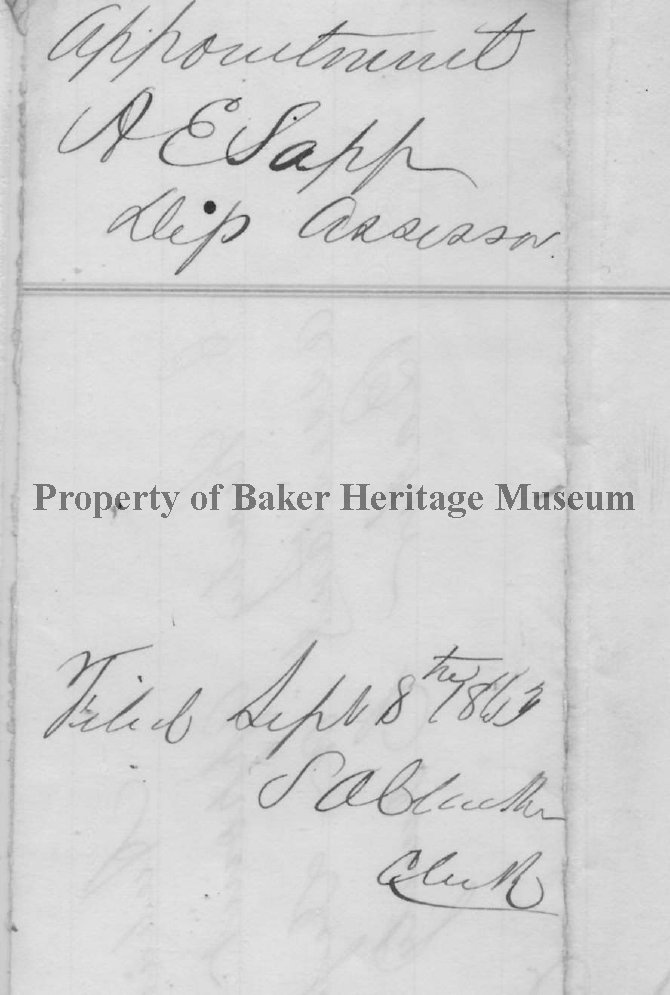 Appointment
A E Sapp
Dep Assessor
Property of Baker Heritage Museum
Filed Sept 8th 1863
S A Clarke
Clerk